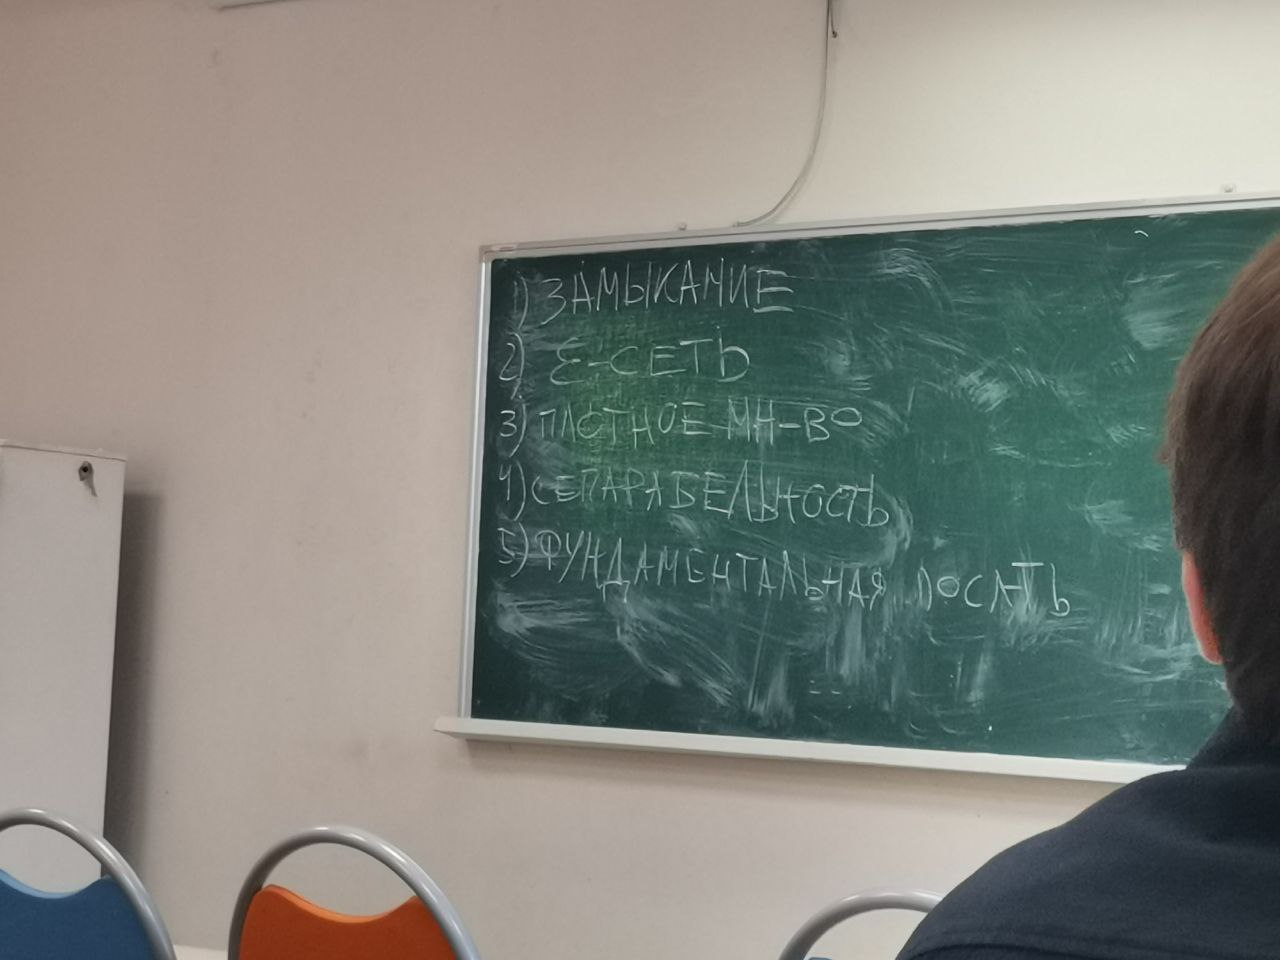 1) ЗАМЫКАНИЕ
2) Ɛ-СЕТЬ
3) ПЛОТНОЕ МН-ВО
4) СЕПАРАБЕЛЬНОСТЬ
5) ФУНДАМЕНТАЛЬНАЯ ПОСЛ-ТЬ